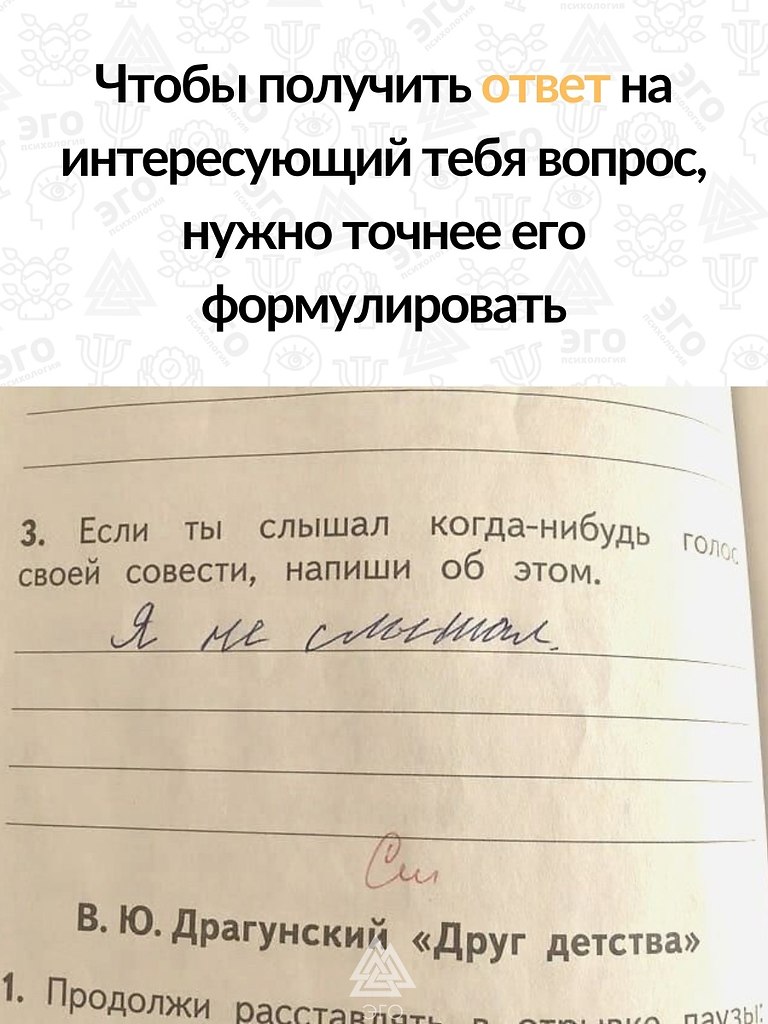 Чтобы получить ответ на
интересующий тебя вопрос,
нужно точнее его
формулировать
3. Если ты слышал когда-нибудь голос
своей совести, напиши об этом.
Я не слышал.
См
В. Ю. Драгунский «Друг детства»
ЭГО
1. Продолжи расставлять в отрывке паузы: